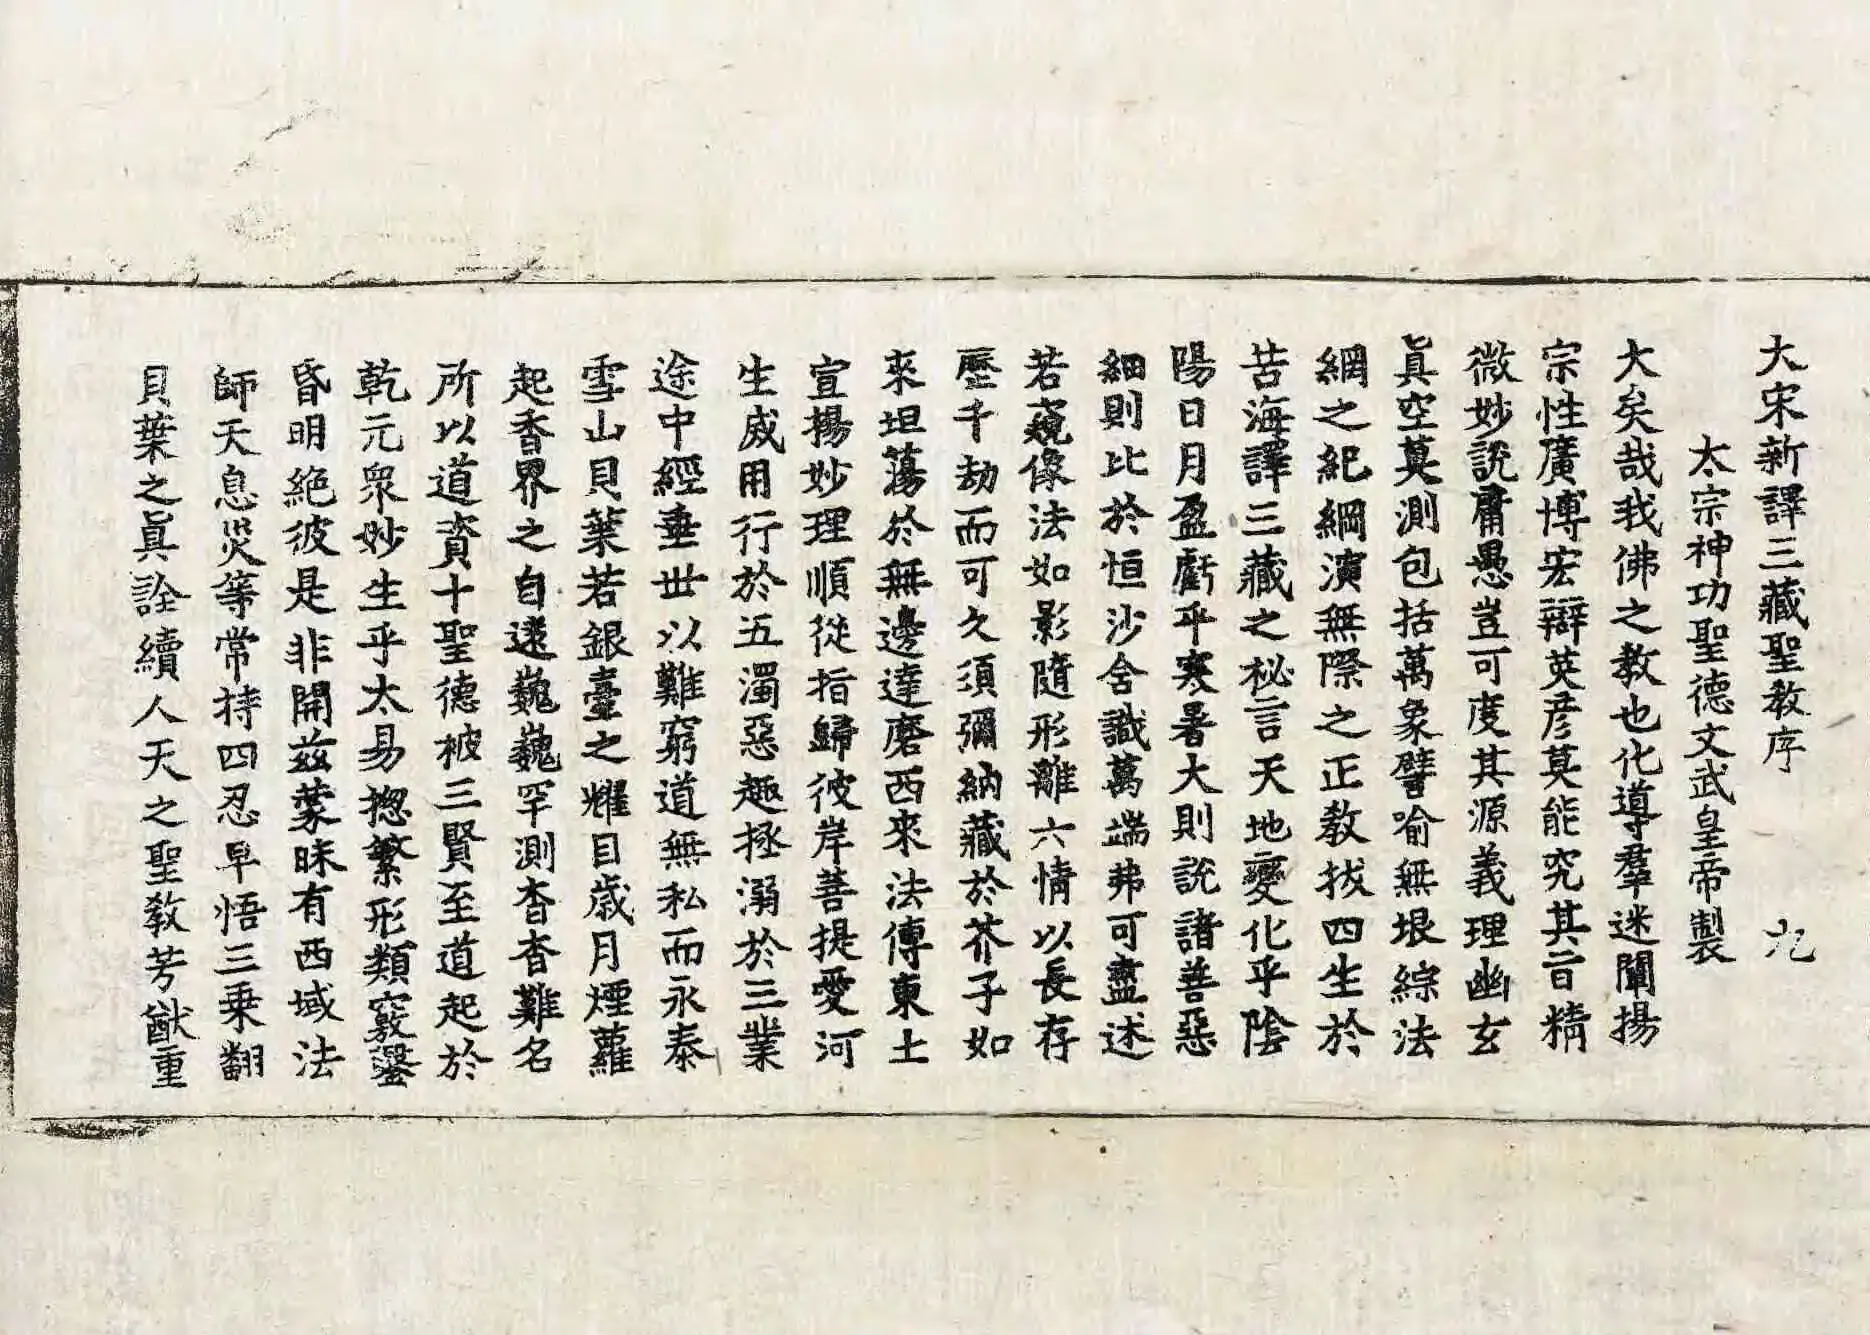 大宋新譯三藏聖教序　九
太宗神功聖德文武皇帝製
大矣哉我佛之教也化導羣迷闡揚
宗性廣博宏辯英彦莫能究其旨精
微妙說庸愚豈可度其源義理幽玄
眞空莫測包括萬象譬喻無垠綜法
網之紀綱演無際之正教拔四生於
苦海譯三藏之秘言天地變化乎陰
陽日月盈虧乎寒暑大則說諸善惡
細則比於恒沙含識萬端弗可盡述
若窺像法如影隨形離六情以長存
歷千劫而可久須彌納藏於芥子如
來坦蕩於無邊達磨西來法傳東土
宣揚妙理順從指歸彼岸菩提愛河
生滅用行於五濁惡趣拯溺於三業
途中經垂世以難窮道無私而永泰
雪山貝葉若銀臺之耀目歲月煙蘿
起香界之自遠巍巍罕測杳杳難名
所以道資十聖德被三賢至道起於
乾元衆妙生乎太易揔繁形類竅鑿
昏明絕彼是非開茲蒙昧有西域法
師天息災等常持四忍早悟三乘翻
貝葉之眞詮續人天之聖教芳猷重